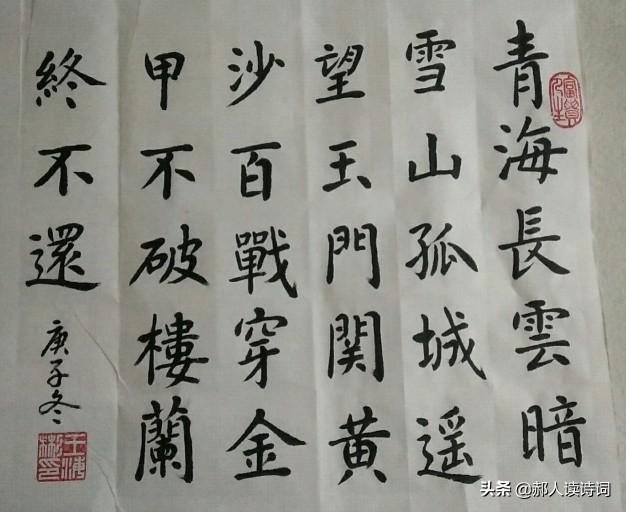 青海長雲暗
雪山孤城遥
望玉門関黄
沙百戰穿金
甲不破樓蘭
終不還
庚子冬
头条@郝人读诗词